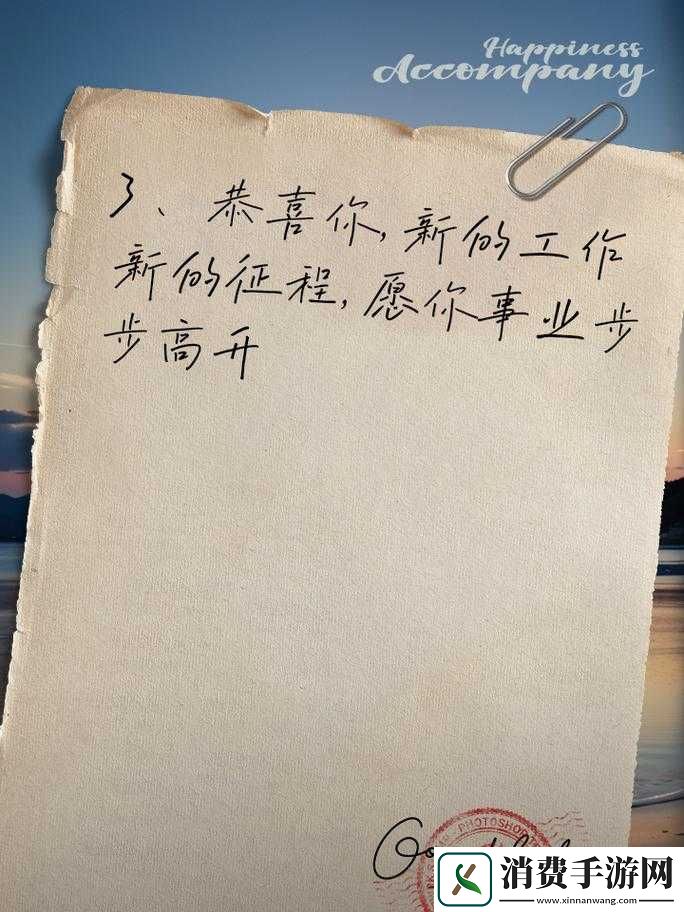 Happiness
Accompany
3、恭喜你,新的工作
新的征程,愿你事业步
步高升
PHOTOSHOP
消费手游网
www.xinnanwang.com